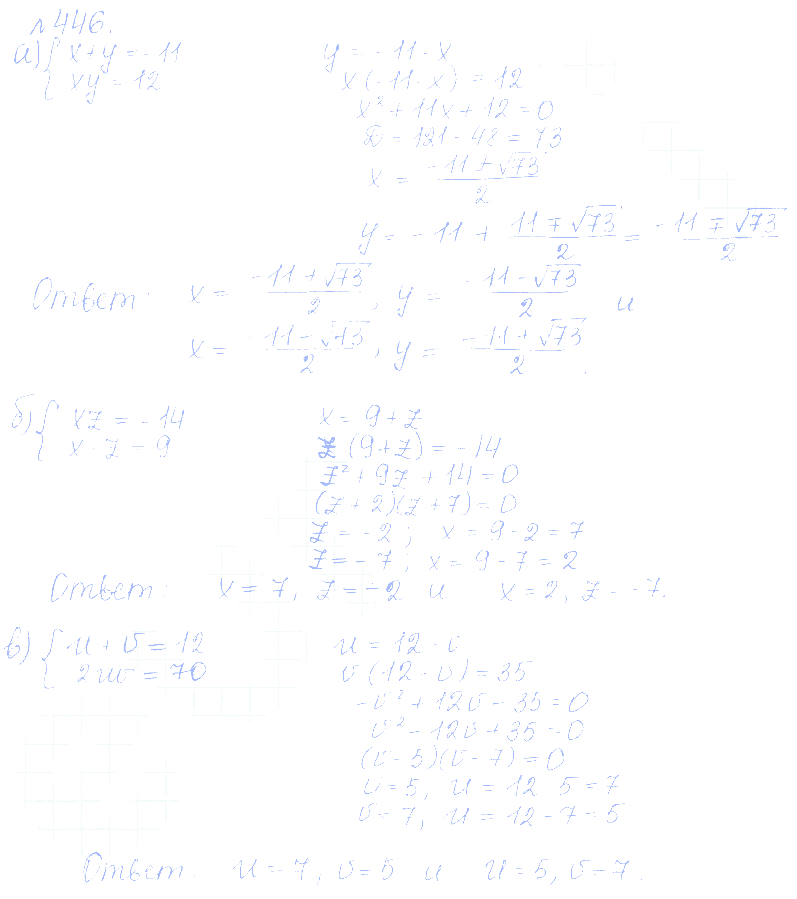 №446.
а) { x+y = -11    y = -11 - x
{ xy = 12    x(-11-x) = 12
x² + 11x + 12 = 0
D = 121 - 48 = 73
x = (-11 ± √73)/2
y = -11 + (11 ∓ √73)/2 = (-11 ∓ √73)/2
Ответ: x = (-11+√73)/2, y = (-11-√73)/2 и
x = (-11-√73)/2, y = (-11+√73)/2.
б) { xz = -14    x = 9+z
{ x - z = 9    z(9+z) = -14
z² + 9z + 14 = 0
(z+2)(z+7) = 0
z = -2; x = 9-2 = 7
z = -7; x = 9-7 = 2
Ответ: x = 7, z = -2 и x = 2, z = -7.
в) { u + v = 12    u = 12 - v
{ 2uv = 70    v(12-v) = 35
-v² + 12v - 35 = 0
v² - 12v + 35 = 0
(v-5)(v-7) = 0
v = 5, u = 12-5 = 7
v = 7, u = 12-7 = 5
Ответ: u = 7, v = 5 и u = 5, v = 7.